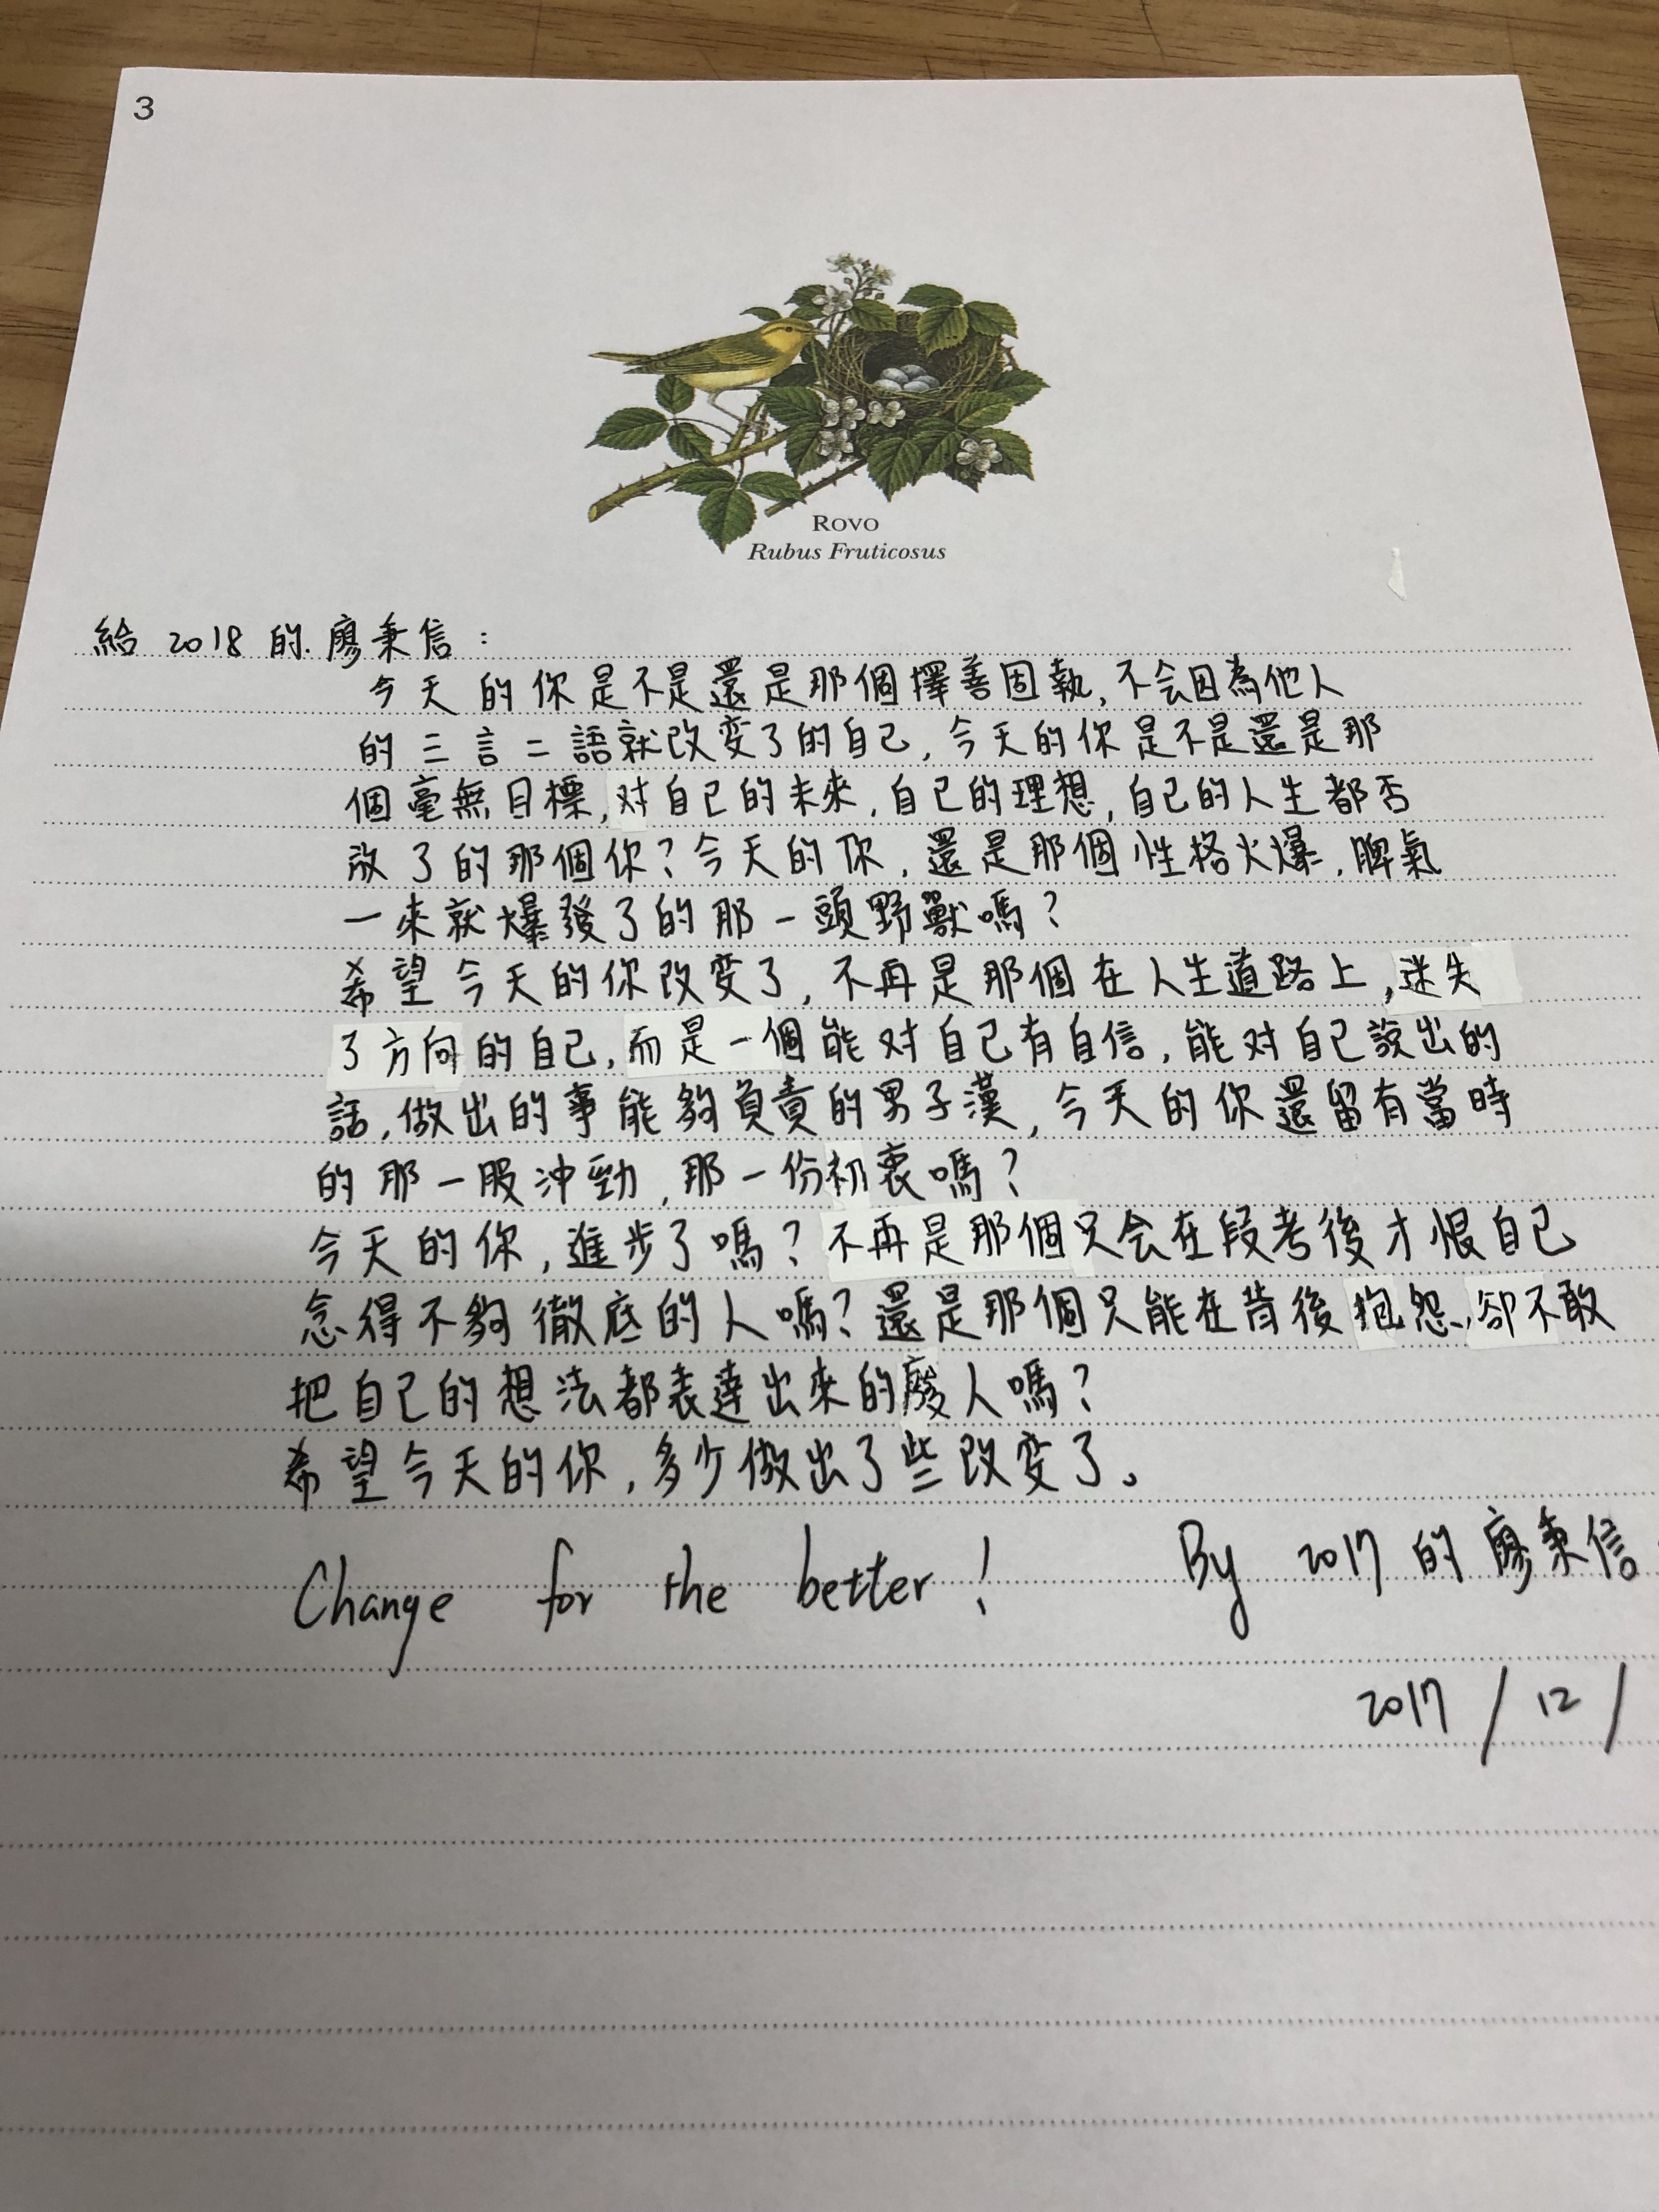 3
ROVO
Rubus Fruticosus
給2018的廖秉信：
今天的你是不是還是那個擇善固執,不会因為他人
的三言二語就改变了的自己,今天的你是不是還是那
個毫無目標,对自己的未來,自己的理想,自己的人生都否
放了的那個你?今天的你,還是那個性格火爆,脾氣
一來就爆發了的那一頭野獸嗎?
希望今天的你改变了,不再是那個在人生道路上,迷失
了方向的自己,而是一個能对自己有自信,能对自己說出的
話,做出的事能夠負責的男子漢,今天的你還留有當時
的那一股沖勁,那一份初衷嗎?
今天的你,進步了嗎?不再是那個只会在段考後才恨自己
念得不夠徹底的人嗎?還是那個只能在背後抱怨,卻不敢
把自己的想法都表達出來的廢人嗎?
希望今天的你,多少做出了些改变了。
Change for the better! By 2017的廖秉信
2017/12/